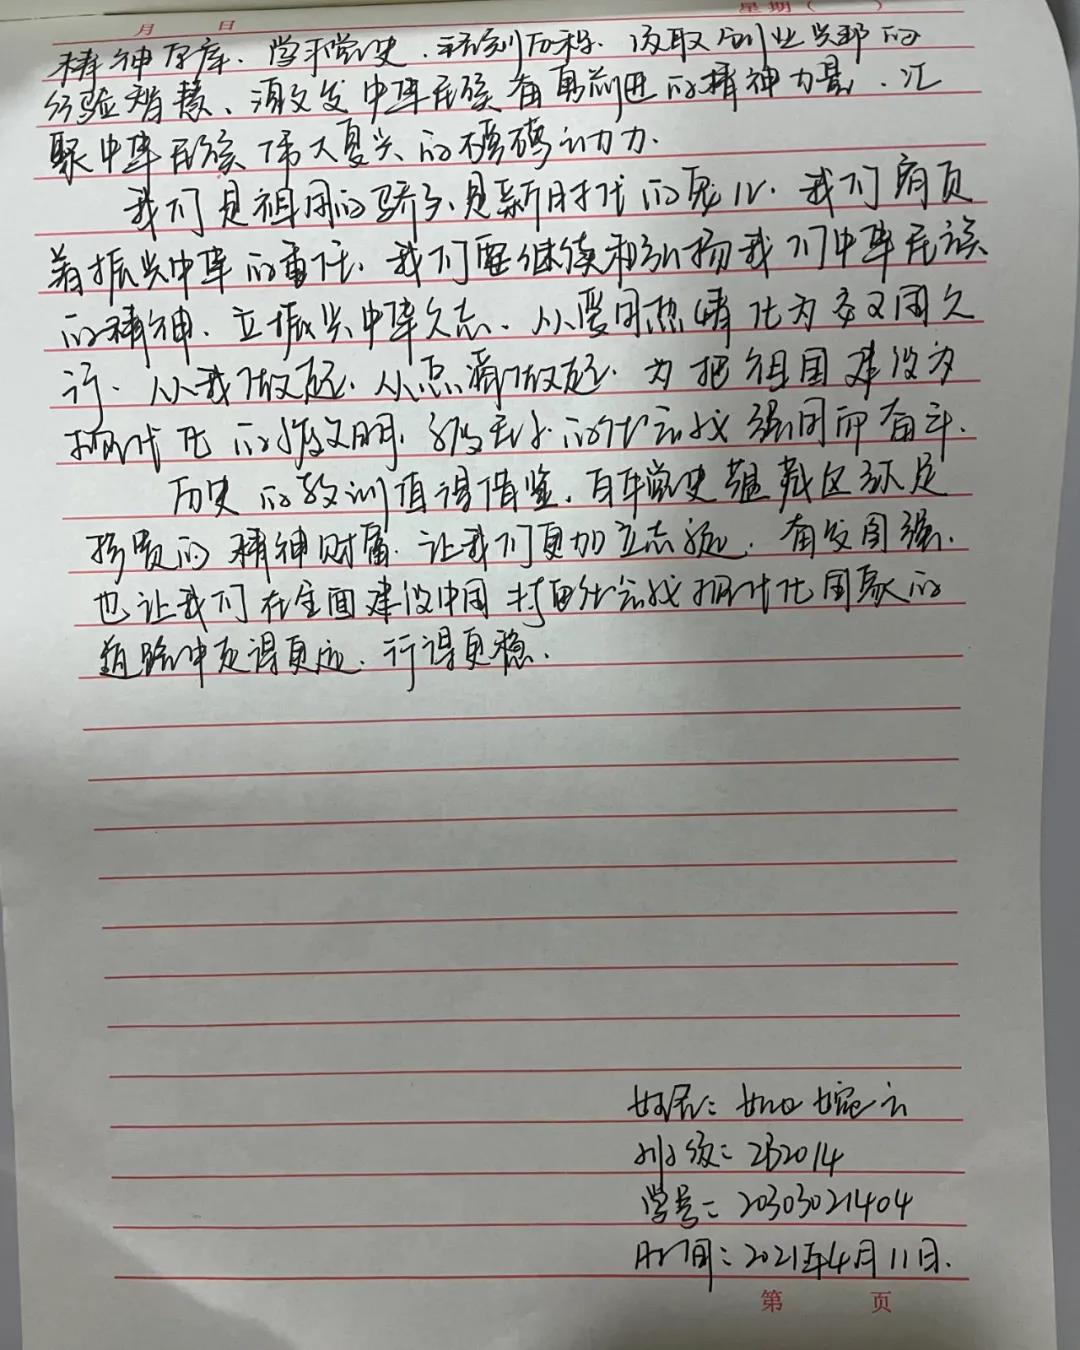 月 日 星期（ ）
精神宝库、学习党史、铭刻历程、汲取创业兴邦的
经验智慧、激发中华民族奋勇前进的精神力量、汇
聚中华民族伟大复兴的磅礴动力.
我们是祖国的骄子、是新时代的宠儿、我们肩负
着振兴中华的重任、我们要继续和弘扬我们中华民族
的精神、立振兴中华之志、从爱国热情化为变国之
行、从我做起、从点滴做起、为把祖国建设为
现代化的文明、的社会主义强国而奋斗.
历史的教训值得借鉴、百年党史蕴藏
珍贵的精神财富、让我们更加立志、奋发图强、
也让我们在全面建设中国特色社会主义现代化国家的
道路中走得更远、行得更稳.
姓名：
班级：2B2014
学号：20303021404
时间：2021年4月11日.
第 页